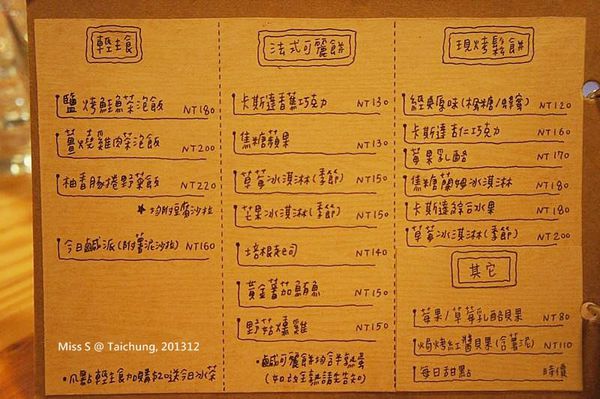 輕主食
鹽烤鮭魚茶泡飯 NT180
薑燒雞肉茶泡飯 NT200
柚香豚捲野菜飯 NT220
★均附豆腐沙拉
今日鹹派(附薯泥沙拉) NT160
•凡點輕主食加購$20送今日冰茶
法式可麗餅
卡斯達香蕉巧克力 NT130
焦糖蘋果 NT130
草莓冰淇淋(季節) NT150
芒果冰淇淋(季節) NT150
培根起司 NT140
黃金蕃茄鮪魚 NT150
野菇燻雞 NT150
•鹹可麗餅均含半熟蛋
(如改全熟請先告知)
現烤鬆餅
經典原味(楓糖/蜂蜜) NT120
卡斯達杏仁巧克力 NT160
莓果乳酪 NT170
焦糖蘭姆冰淇淋 NT180
卡斯達綜合水果 NT180
草莓冰淇淋(季節) NT200
其它
莓果/草莓乳酪貝果 NT80
焗烤紅醬貝果(含薯泥) NT110
每日甜點 時價
Miss S @ Taichung, 201312